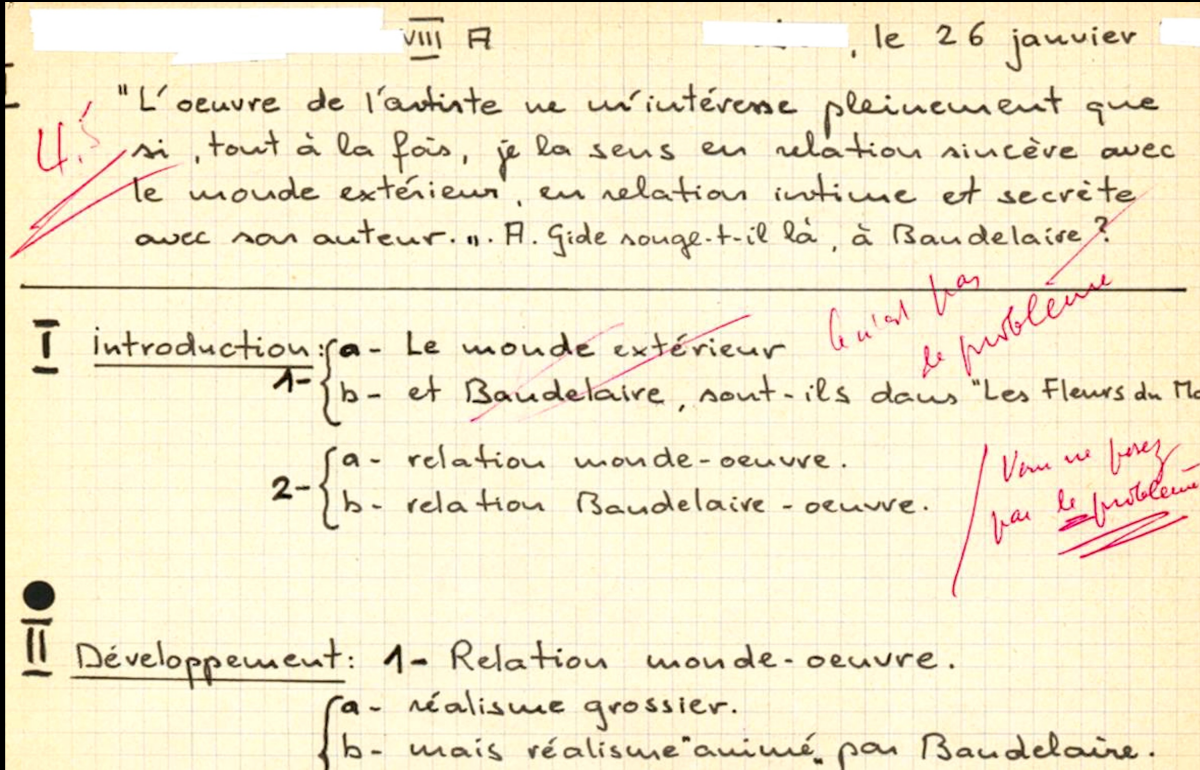 VIII A , le 26 janvier
"L'oeuvre de l'artiste ne m'intéresse pleinement que
4.5
si, tout à la fois, je la sens en relation sincère avec
le monde extérieur, en relation intime et secrète
avec son auteur.". A. Gide songe-t-il là, à Baudelaire ?
I introduction: 1- a- Le monde extérieur
Ce n'est pas
de problème
b- et Baudelaire, sont-ils dans "Les Fleurs du Ma
2- a- relation monde-oeuvre.
b- relation Baudelaire-oeuvre.
Vous ne posez
pas le problème
II Développement: 1- Relation monde-oeuvre.
a- réalisme grossier.
b- mais réalisme "animé" par Baudelaire.